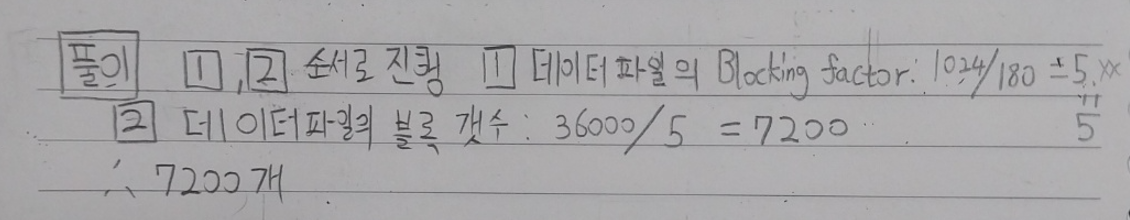 풀이 1, 2 순서로 진행 1 데이터파일의 Blocking factor: 1024/180 ≒ 5.xx
2 데이터파일의 블록 갯수: 36000/5 = 7200 5
∴ 7200개